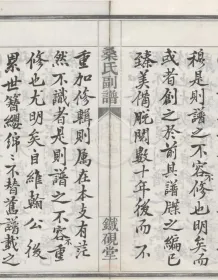 穆是則譜之不容不修也明矣而
或者創之於前其譜牒之編已
臻美備脫閱數十年後而不
桑氏副譜
鐵硯堂
重加修輯則属在本支有茫
然不識者是則譜之不容不重
修也尤明矣自維翰公後
累世簪纓綿綿不替舊譜載之